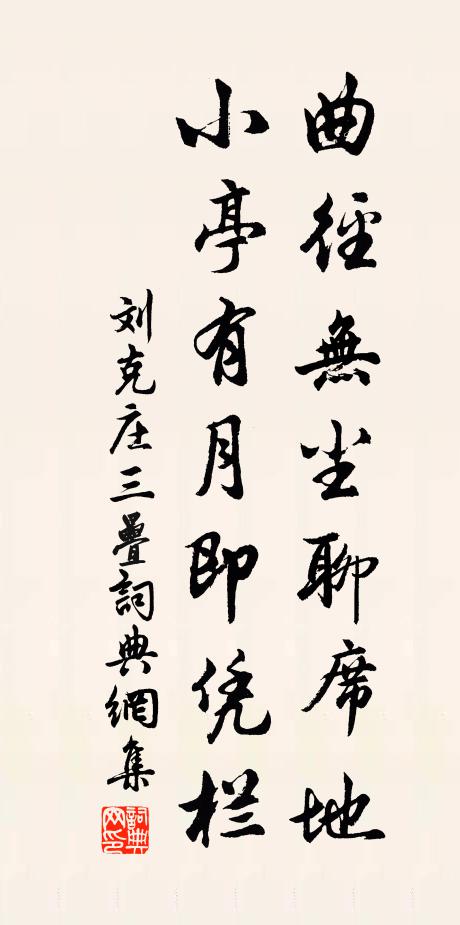 曲徑無尘聊席地
小亭有月即凭栏
刘克庄三疊詞典網集
詞典网印